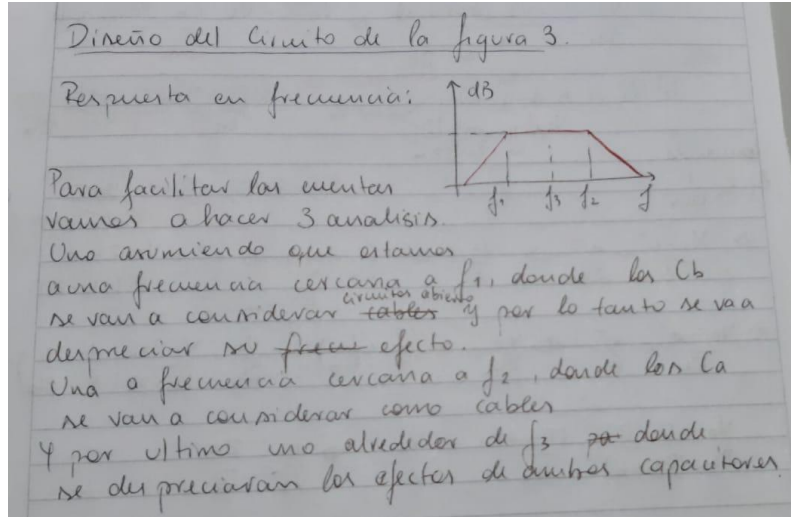 Diseño del Circuito de la figura 3.
Respuesta en frecuencia:
dB
f1 f3 f2 f
Para facilitar las cuentas
vamos a hacer 3 analisis.
Uno asumiendo que estamos
a una frecuencia cercana a f1, donde los Cb
circuitos abierto
se van a considerar cables y por lo tanto se va a
despreciar su frecue efecto.
Una a frecuencia cercana a f2, donde los Ca
se van a considerar como cables
Y por ultimo uno alrededor de f3 donde
se despreciaran los efectos de ambos capacitores.